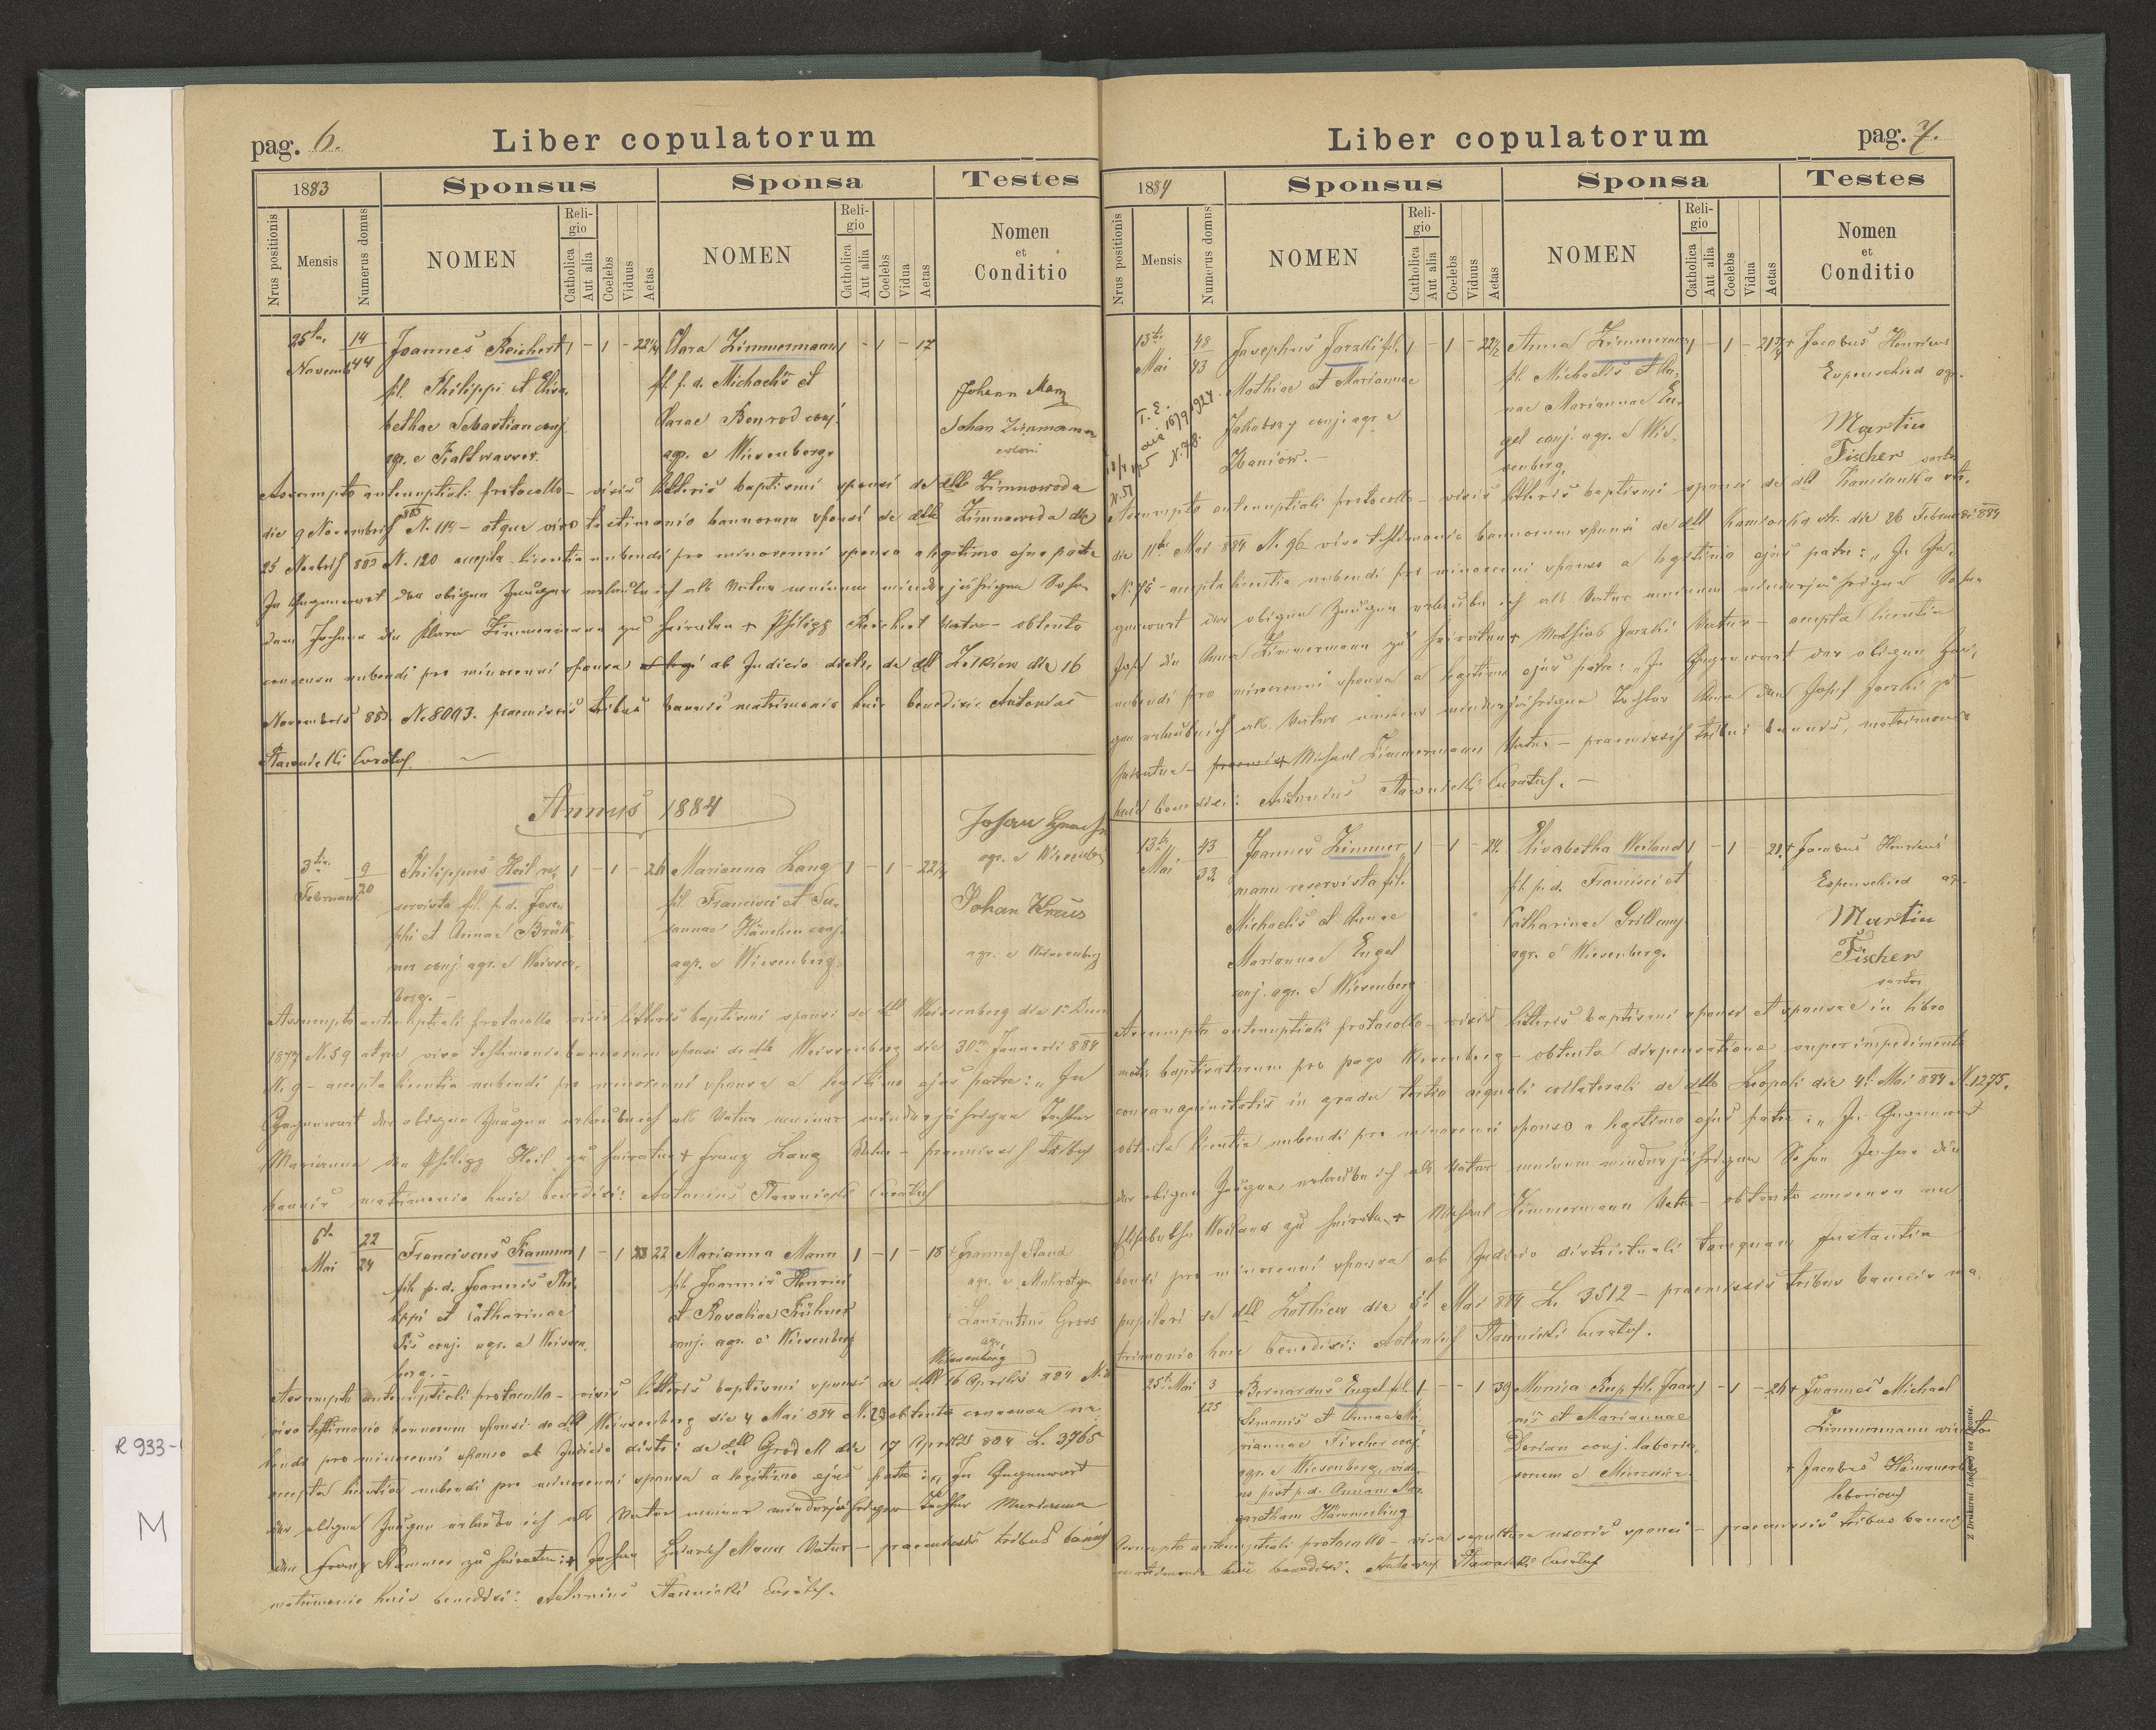 pag. 6.
Liber copulatorum
1883
Sponsus
Sponsa
Testes
Nrus positionis
Mensis
Numerus domus
NOMEN
Religio
Catholica
Aut alia
Coelebs
Viduus
Aetas
NOMEN
Religio
Catholica
Aut alia
Coelebs
Vidua
Aetas
Nomen
et
Conditio
25ta
Novemb
14
44
Joannes Reichert 1 - 1 - 22
fil. Philippi et Elisa-
bethae Sebastian conj.
agr. e Kaltwasser.
Clara Zimmermann 1 - 1 - 17
fil. p. d. Michaelis et
Clarae Benrod conj.
agr. e Wiesenberg
Johann Manz
Johan Zimmermann
coloni
Assumpto antenuptiali protocollo - visis litteris baptismi sponsi de dtto Zimnowoda
die 9 Novembris 883 N. 114 - atque viso testimonio bannorum sponsi de dtto Zimnowoda dto
25 Novbris 883 N. 120 accepta licentia nubendi pro minorenni sponso a legitimo ejus patre
In Gegenwart der obigen Zeugen erlaube ich als Vater meinem minderjährigen Sohn
dem Johann die Klara Zimmermann zu heiraten + Philipp Reichert Vater - obtento
consensu nubendi pro minorenni sponsa ab Judicio distr. de dtto Zolkiew die 16
Novembris 883 N. 8093. praemissis tribus bannis matrimonio huic benedixi Antonius
Stawnicki Curatus.
Annus 1884
3tia
Februarii
9
20
Philippus Heil re- 1 - 1 - 26
servista fil. p. d. Jose-
phi et Annae Brück-
ner conj. agr. e Weissen-
berg. -
Marianna Lang 1 - 1 - 22
fil. Francisci et Su-
sannae Hänchen conj.
agr. e Wiesenberg.
agr. e Wiesenberg
Johan Kreus
agr. e Wiesenberg
Assumpto antenuptiali protocollo visis litteris baptismi sponsi de dtto Weissenberg die
1877 N. 59 atque viso testimonio bannorum sponsi de dtto Weissenberg die 30 Januarii 884
N. 9 - accepta licentia nubendi pro minorenni sponsa a legitimo ejus patre: „In
Gegenwart der obigen Zeugen erlaube ich als Vater meiner minderjährigen Tochter
Marianna den Philipp Heil zu heiraten + Franz Lang Vater - praemissis tribus
bannis matrimonio huic benedixi: Antonius Stawnicki Curatus
6ta
Mai
22
24
Franciscus Rammer 1 - 1 22
fil. p. d. Joannis Phi-
lippi et Catharinae
Dis conj. agr. e Weissen-
berg. -
Marianna Mann 1 - 1 - 18
fil. Joannis Henrici
et Rosaliae Kühner
conj. agr. e Wiesenberg
+ Joannes Staud
agr. e Mokrotyn
+ Laurentius Gross
agr.
Wiesenberg
Assumpto antenuptiali protocollo - visis litteris baptismi sponsi de dtto 16 Aprilis 884
viso testimonio bannorum sponsi de dtto Weissenberg die 4 Mai 884 N. 29 obtento consensu nu-
bendi pro minorenni sponso ab Judicio distr. de dtto Grodek die 17 Aprilis 884 L. 3765
accepta licentia nubendi pro minorenni sponsa a legitimo ejus patre: „In Gegenwart
der obigen Zeugen erlaube ich als Vater meiner minderjährigen Tochter Marianna
den Franz Rammer zu heiraten: + Johann Heinrich Mann Vater - praemissis tribus bannis
matrimonio huic benedixi: Antonius Stawnicki Curatus.
Liber copulatorum
pag. 7.
1884
Sponsus
Sponsa
Testes
Nrus positionis
Mensis
Numerus domus
NOMEN
Religio
Catholica
Aut alia
Coelebs
Viduus
Aetas
NOMEN
Religio
Catholica
Aut alia
Coelebs
Vidua
Aetas
Nomen
et
Conditio
13tia
Mai
48
43
T. E.
die 16/9 1924.
N. 78.
N. 51
Josephus Jarzki fil. 1 - 1 - 22 1/2
Mathiae et Mariannae
Jakubozy conj. agr. e
Zbaniow. -
Anna Zimmermann 1 - 1 - 21
fil. Michaelis et An-
nae Mariannae En-
gel conj. agr. e Wie-
senberg.
+ Jacobus Henricus
Espenschied agr.
Martin
Fischer sartor
Assumpto antenuptiali protocollo - visis litteris baptismi sponsi de dtto Kamionka str.
die 11ta Mai 884 N. 96 viso testimonio bannorum sponsi de dtto Kamionka str. die 26 Februarii 884
N. 75 - accepta licentia nubendi pro minorenni sponso a legitimo ejus patre: „In Ge-
genwart der obigen Zeugen erlaube ich als Vater meinem minderjährigen Sohn
Josef die Anna Zimmermann zu heiraten + Mathias Jarzki Vater - accepta licentia
nubendi pro minorenni sponsa a legitimo ejus patre: „In Gegenwart der obigen Zeu-
gen erlaube ich als Vater meiner minderjährigen Tochter Anna den Josef Jarzki zu
heiraten - + Michael Zimmermann Vater - praemissis tribus bannis, matrimonio
huic benedixi: Antonius Stawnicki Curatus. -
13tia
Mai
43
33
Joannes Zimmer- 1 - 1 - 24
mann reservista fil.
Michaelis et Annae
Mariannae Engel
conj. agr. e Wiesenberg
Elisabetha Weiland 1 - 1 - 21
fil. p. d. Francisci et
Catharinae Grill conj.
agr. e Wiesenberg.
+ Jacobus Henricus
Espenschied agr.
Martin
Fischer
sartor
Assumpto antenuptiali protocollo - visis litteris baptismi sponsi et sponsae in libro
metr. baptisatorum pro pago Wiesenberg - obtenta dispensatione super impedimento
consanquinitatis in gradu tertio aequali collaterali de dtto Leopoli die 4t. Mai 884 N. 1275.
obtenta licentia nubendi pro minorenni sponso a legitimo ejus patre: „In Gegenwart
der obigen Zeugen erlaube ich als Vater meinem minderjährigen Sohn Johann die
Elisabetha Weiland zu heiraten + Michael Zimmermann Vater - obtento consensu nu-
bendi pro minorenni sponsa ab Judicio districtuali tamquam Instantia
pupilari de dtto Zolkiew die 5t. Mai 884 L. 3512 - praemissis tribus bannis ma-
trimonio huic benedixi: Antonius Stawnicki Curatus.
25ta Mai
3
125
Bernardus Engel fil. 1 - - 1 39
Simonis et Annae Ma-
riannae Fischer conj.
agr. e Wiesenberg, vidu-
us post p. d. Annam Mar-
garetham Hämmerling
Monica Rup fil. Joan- 1 - 1 - 26
nis et Mariannae
Dorian conj. laborio-
sorum e Mierzwica
+ Joannes Michael
Zimmermann
+ Jacobus
laboriosus
Assumpto antenuptiali protocollo - visa sepultura uxoris sponsi - praemissis tribus bannis
matrimonio huic benedixi. Antonius Stawnicki Curatus
Z Drukarni Ludowej we Lwowie.
R 933-
M